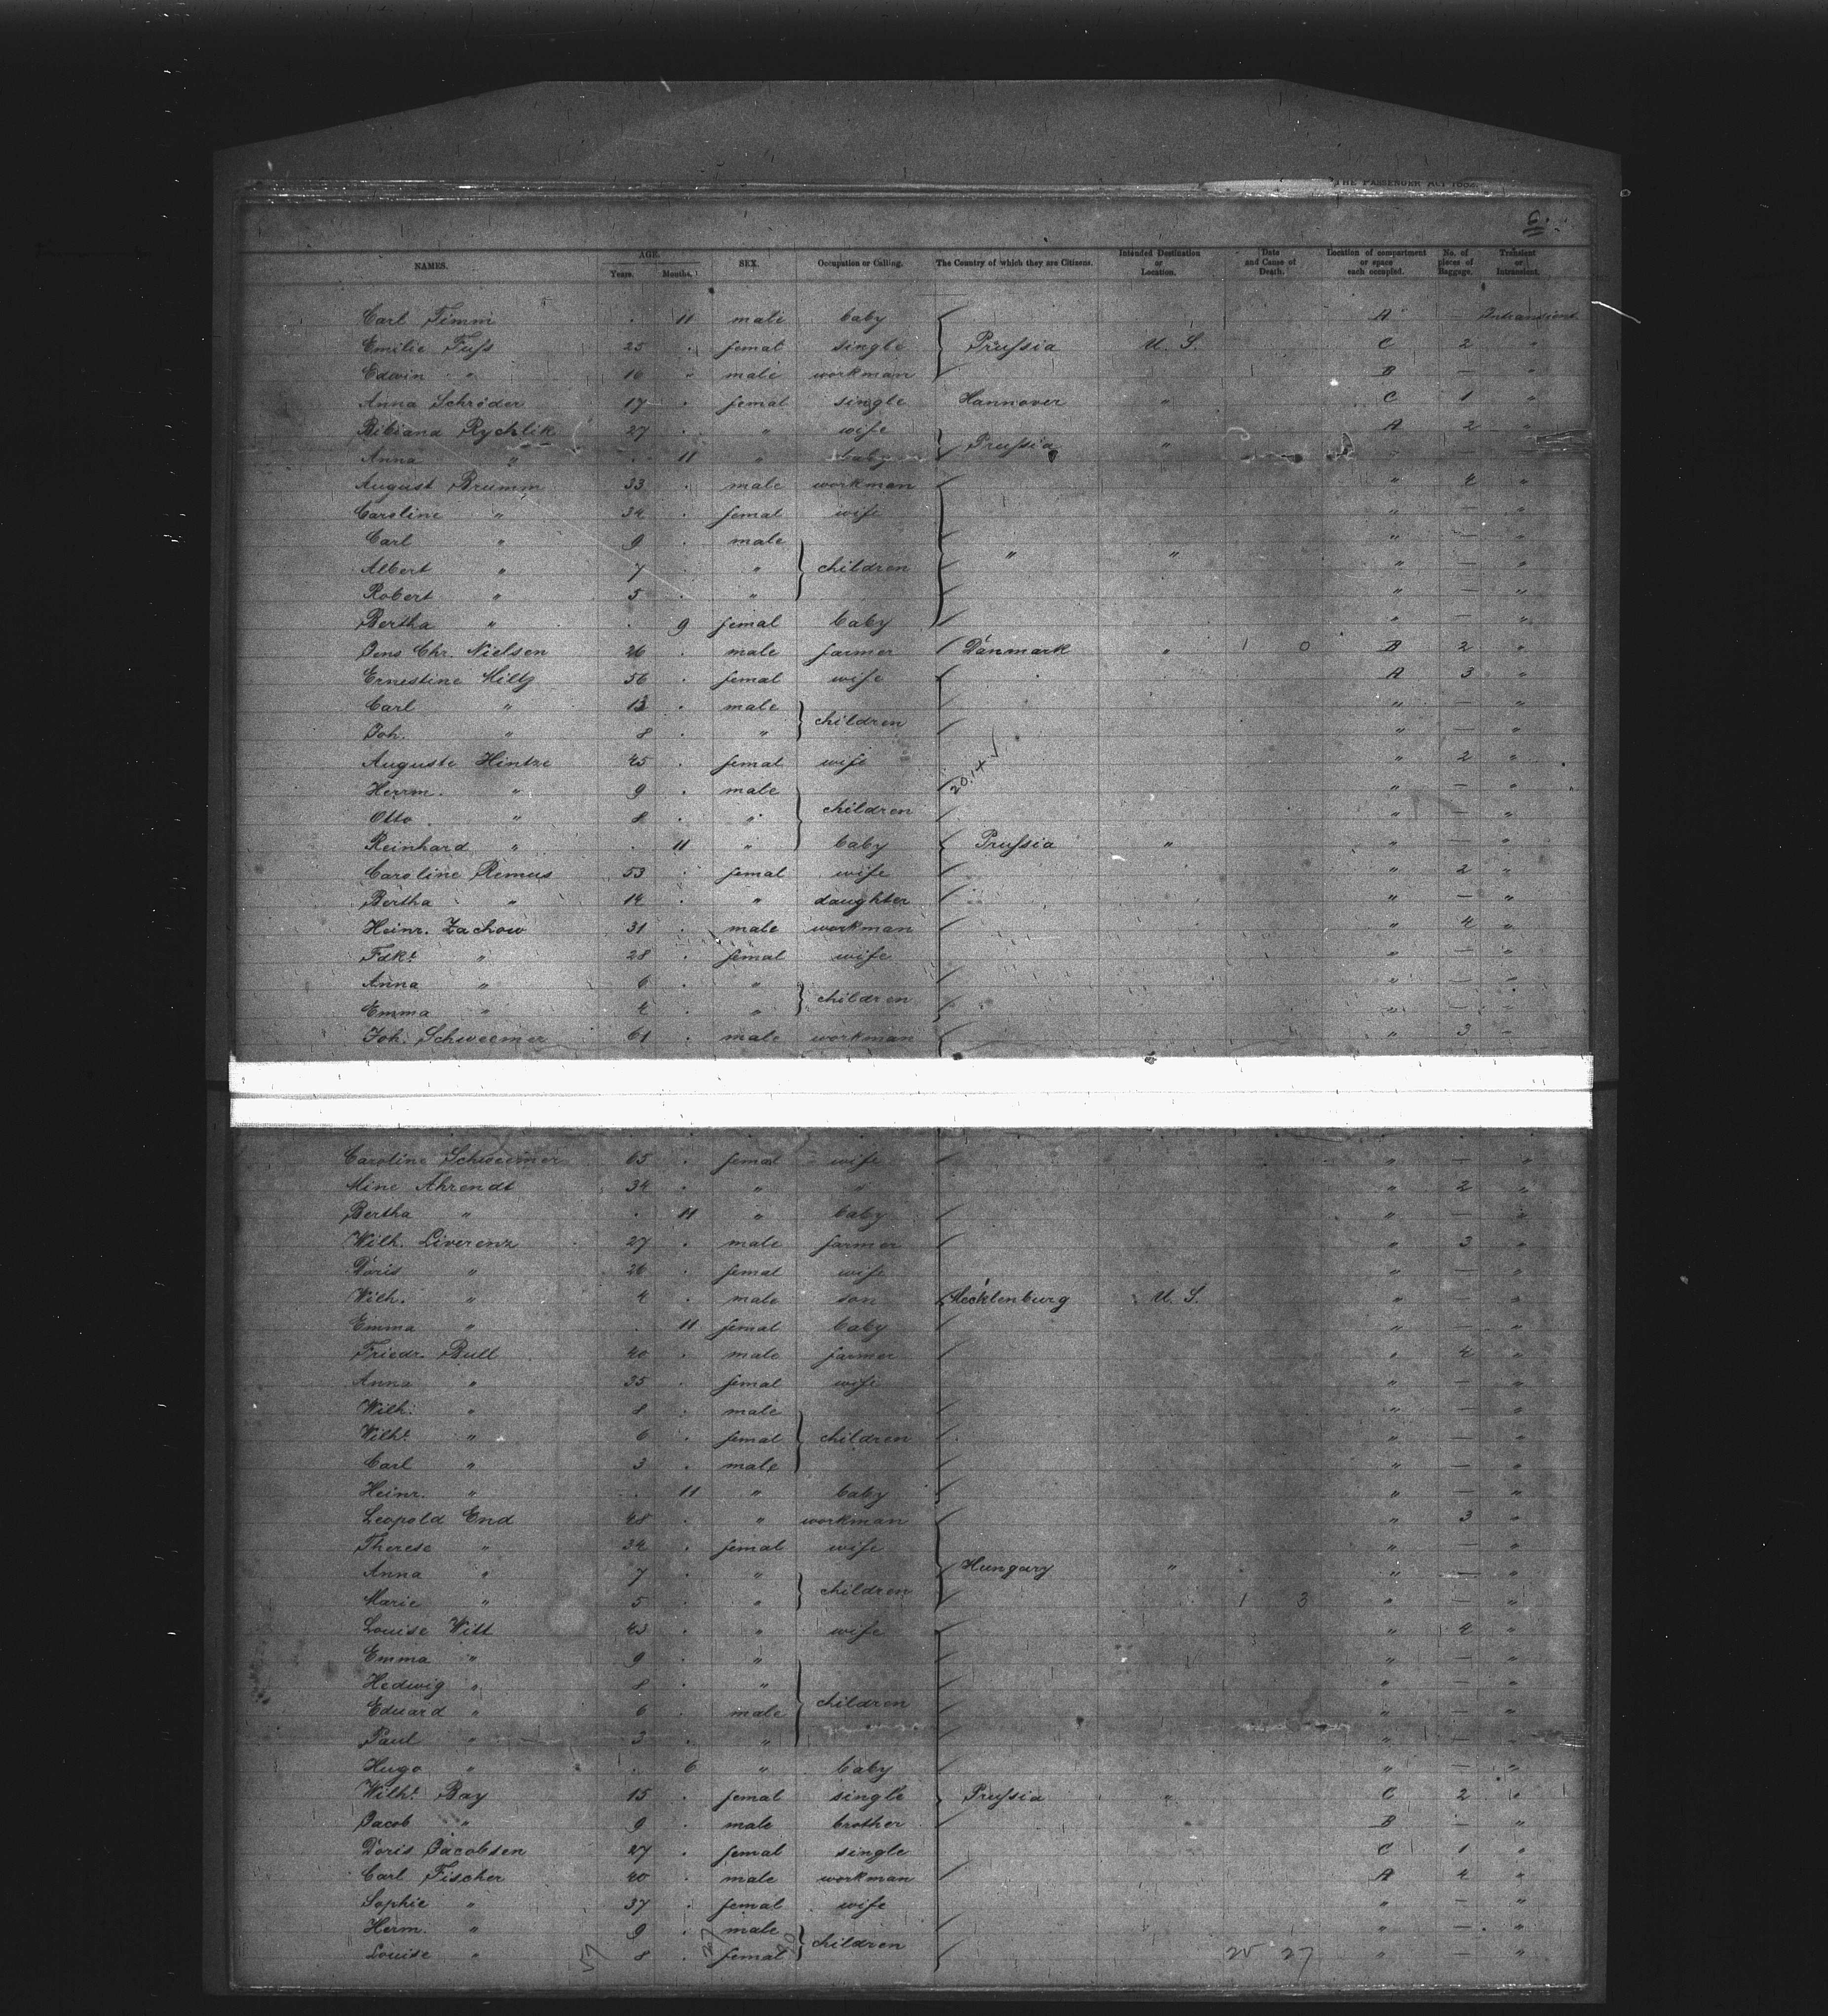 THE PASSENGER ACT 1882.
6.
NAMES. AGE. Years. Months. SEX. Occupation or Calling. The Country of which they are Citizens. Intended Destination or Location. Date and Cause of Death. Location of compartment or space each occupied. No. of pieces of Baggage. Transient or Intransient.
Carl Timm . 11 male baby A — Intransient
Emilie Fuſs 25 . femal single Pruſsia U. S. C 2 "
Edwin " 16 " male workman B — "
Anna Schröder 17 . femal single Hannover " C 1 "
Bibiana Rychlik 27 . " wife A 2 "
Anna " . 11 " baby Pruſsia " " —
August Brumm 33 . male workman " 4 "
Caroline " 34 . femal wife " — "
Carl " 9 . male " — "
Albert " 7 . " children " " " — "
Robert " 5 . " " — "
Bertha " . 9 femal baby " — "
Jens Chr. Nielsen 26 . male farmer Danmark " 1 0 B 2 "
Ernestine Miltz 56 . femal wife A 3 "
Carl " 13 . male children " — "
Joh. " 8 . " " — "
Auguste Hintze 45 . femal wife " 2 "
Herrm. " 9 . male " — "
Otto " 8 . " children " — "
Reinhard " . 11 " baby Pruſsia " " — "
Caroline Remus 53 . femal wife " 2 "
Bertha " 14 . " daughter " — "
Heinr. Zachow 31 . male workman " 4 "
Fdke " 28 . femal wife " — "
Anna " 6 . " children " — "
Emma " 4 . " " — "
Joh. Schweemer 61 . male workman " 3 "
Caroline Schweemer 65 . femal wife " — "
Mine Ahrendt 34 . " " " 2 "
Bertha " . 11 " baby " — "
Wilh. Liverenz 27 . male farmer " 3 "
Doris " 26 . femal wife " — "
Wilh. " 4 . male son Mecklenburg U. S. " — "
Emma " . 11 femal baby " — "
Friedr. Bull 40 . male farmer " 4 "
Anna " 35 . femal wife " — "
Wilh. " 8 . male " — "
Wilhe " 6 . femal children " — "
Carl " 3 . male " — "
Heinr. " . 11 " baby " — "
Leopold End 48 . " workman " 3 "
Therese " 34 . femal wife " — "
Anna " 7 . " children Hungary " " — "
Marie " 5 . " 1 3 " — "
Louise Witt 43 . " wife " 4 "
Emma " 9 . " " — "
Hedwig " 8 . " " — "
Eduard " 6 . male children " — "
Paul " 3 . " " — "
Hugo " . 6 " baby " — "
Wilhe Bay 15 . femal single Pruſsia " C 2 "
Jacob " 9 . male brother B — "
Doris Jacobsen 27 . femal single C 1 "
Carl Fischer 40 . male workman A 4 "
Sophie " 37 . femal wife " — "
Herm. " 9 . male children " — "
Louise " 8 . femal 27 " — "